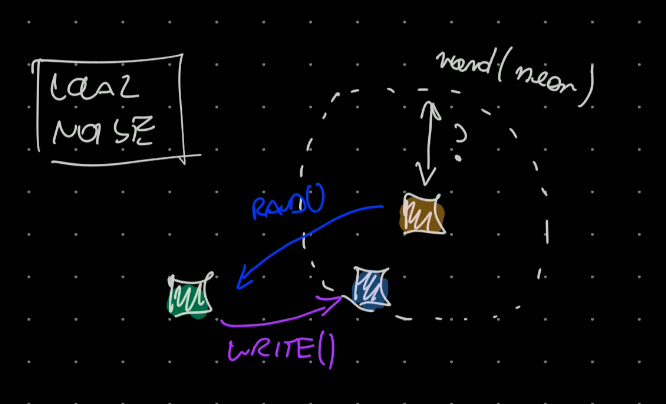 LOCAL
NOISE
rand(near)
?
READ()
WRITE()